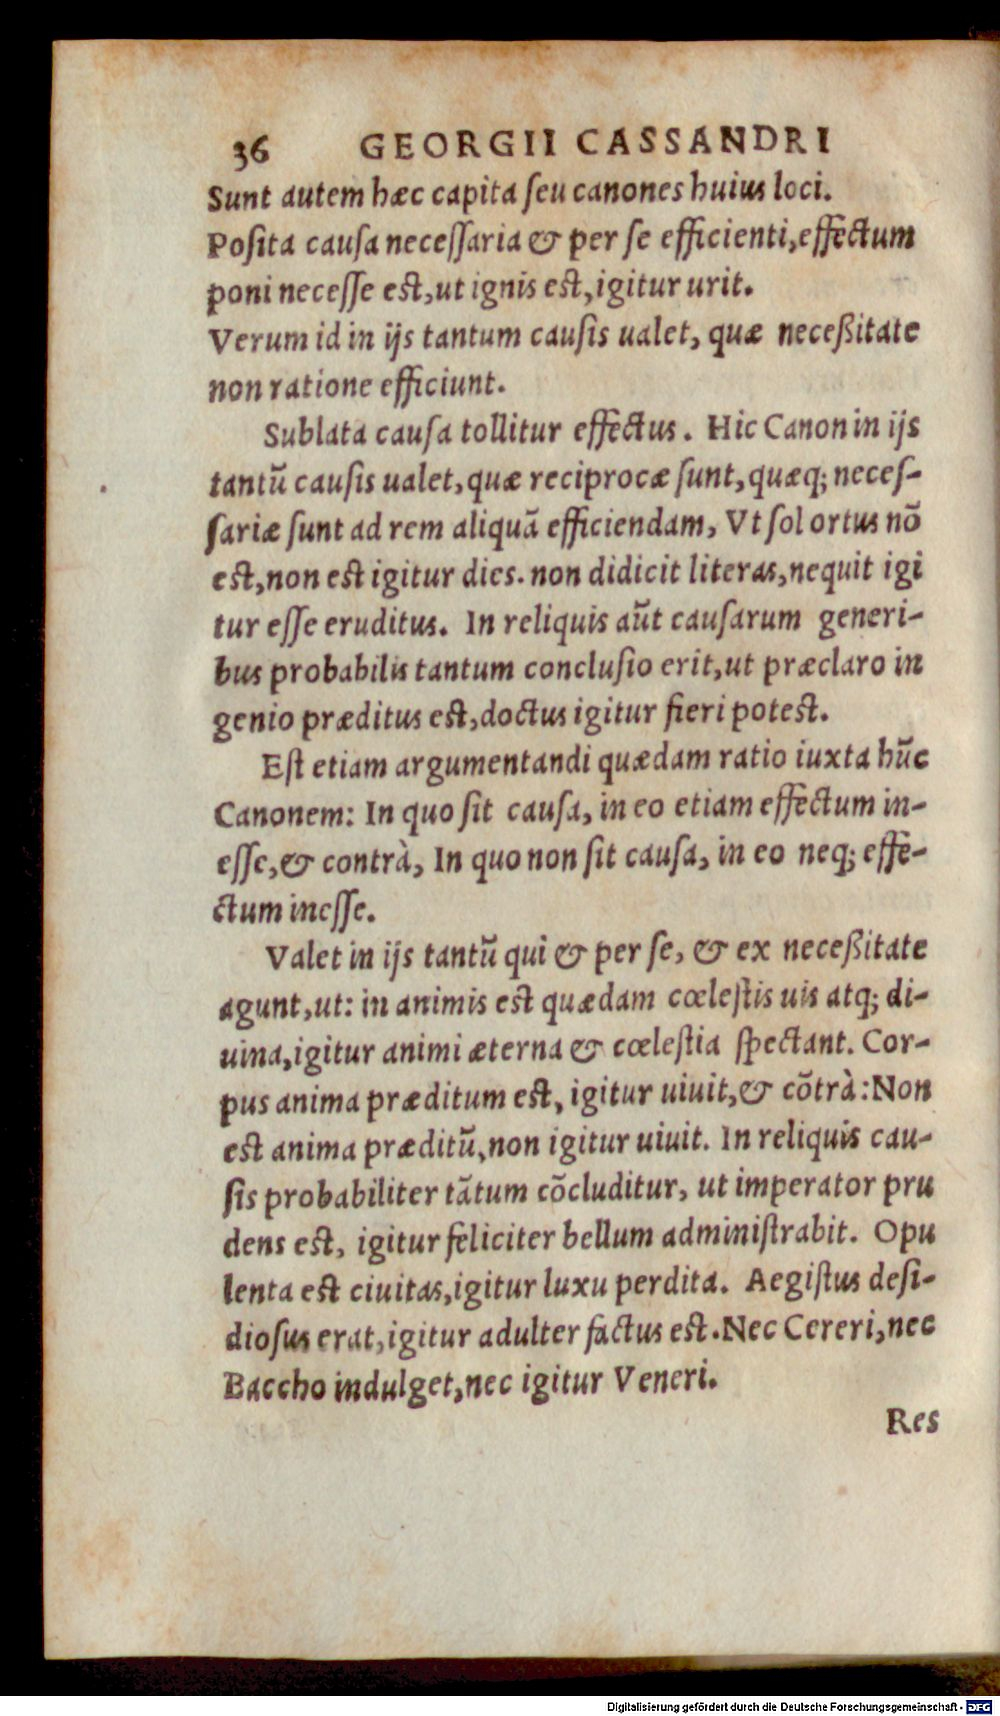 36 GEORGII CASSANDRI
Sunt autem hæc capita seu canones huius loci.
Posita causa necessaria & per se efficienti, effectum
poni necesse est, ut ignis est, igitur urit.
Verum id in ijs tantum causis ualet, quæ neceßitate
non ratione efficiunt.
Sublata causa tollitur effectus. Hic Canon in ijs
tantũ causis ualet, quæ reciprocæ sunt, quæq; neces-
sariæ sunt ad rem aliquã efficiendam, Vt sol ortus nõ
est, non est igitur dies. non didicit literas, nequit igi
tur esse eruditus. In reliquis aũt causarum generi-
bus probabilis tantum conclusio erit, ut præclaro in
genio præditus est, doctus igitur fieri potest.
Est etiam argumentandi quædam ratio iuxta hũc
Canonem: In quo sit causa, in eo etiam effectum in-
esse, & contrà, In quo non sit causa, in eo neq; effe-
ctum inesse.
Valet in ijs tantũ qui & per se, & ex neceßitate
agunt, ut: in animis est quædam cœlestis uis atq; di-
uina, igitur animi æterna & cœlestia spectant. Cor-
pus anima præditum est, igitur uiuit, & cõtrà: Non
est anima præditũ, non igitur uiuit. In reliquis cau-
sis probabiliter tãtum cõcluditur, ut imperator pru
dens est, igitur feliciter bellum administrabit. Opu
lenta est ciuitas, igitur luxu perdita. Aegistus desi-
diosus erat, igitur adulter factus est. Nec Cereri, nec
Baccho indulget, nec igitur Veneri.
Res
Digitalisierung gefördert durch die Deutsche Forschungsgemeinschaft - DFG